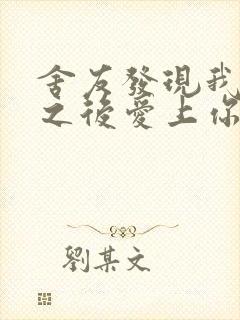 舍友發現我
之後愛上你
劉某文